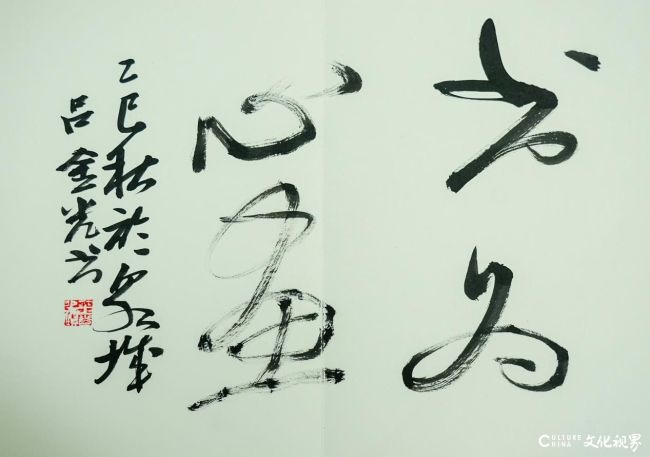 书为
心画
乙巳秋于泉城
吕金光书
CULTURE CHINA 文化视界